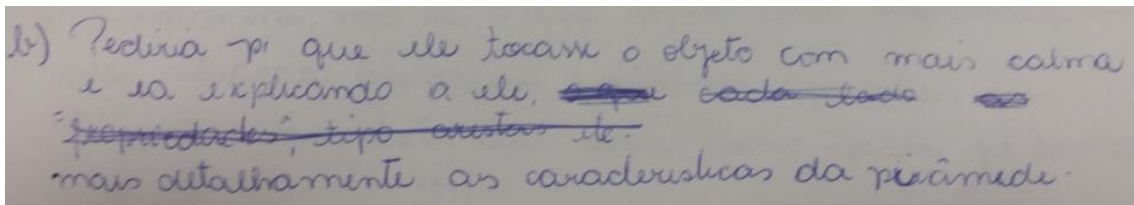 b) Pediria p/ que ele tocasse o objeto com mais calma
e ia explicando a ele, cada lado as
"propriedades", tipo arestas etc.
mais detalhamente as caracteristicas da pirâmede.